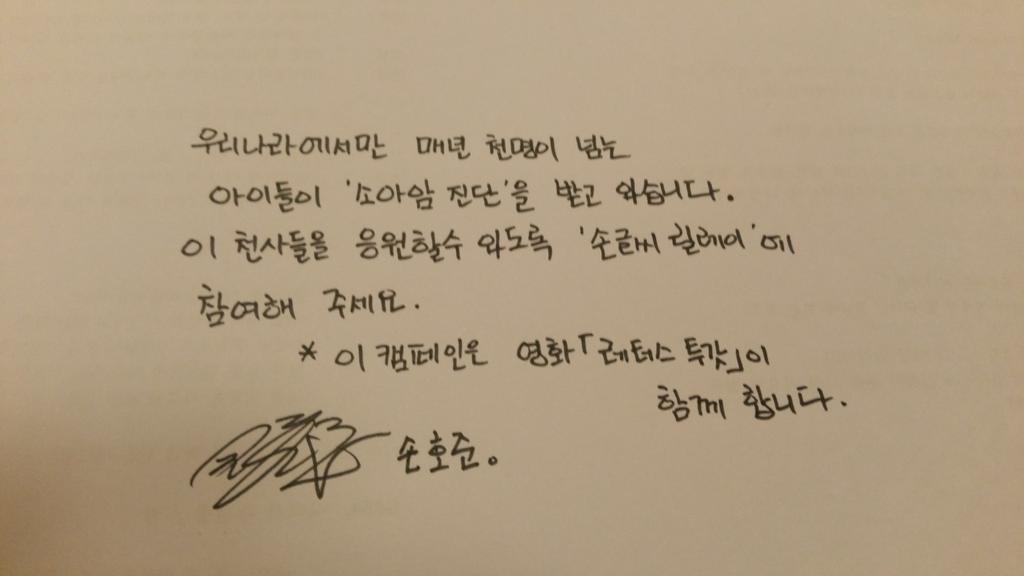 우리나라에서만 매년 천명이 넘는
아이들이 '소아암 진단'을 받고 있습니다.
이 천사들을 응원할수 있도록 '손글씨 릴레이'에
참여해 주세요.
* 이 캠페인은 영화「레테스 특갓」이
함께 합니다.
손호준.